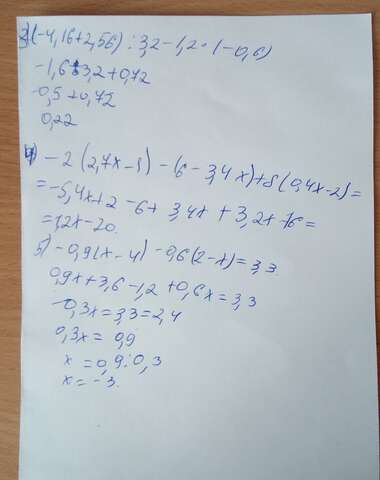 3) (-4,16+2,56) : 3,2-1,2·(-0,6)
-1,6:3,2+0,72
-0,5+0,72
0,22
4) -2 (2,7x-1) - (6 - 3,4x)+8(0,4x-2)=
=-5,4x+2 -6+ 3,4x + 3,2x -16=
=1,2x-20.
5) -0,9(x-4) -0,6(2-x)=3,3.
0,9x+3,6-1,2 +0,6x=3,3
-0,3x=3,3=2,4
0,3x= 0,9
x = 0,9:0,3
x=-3.